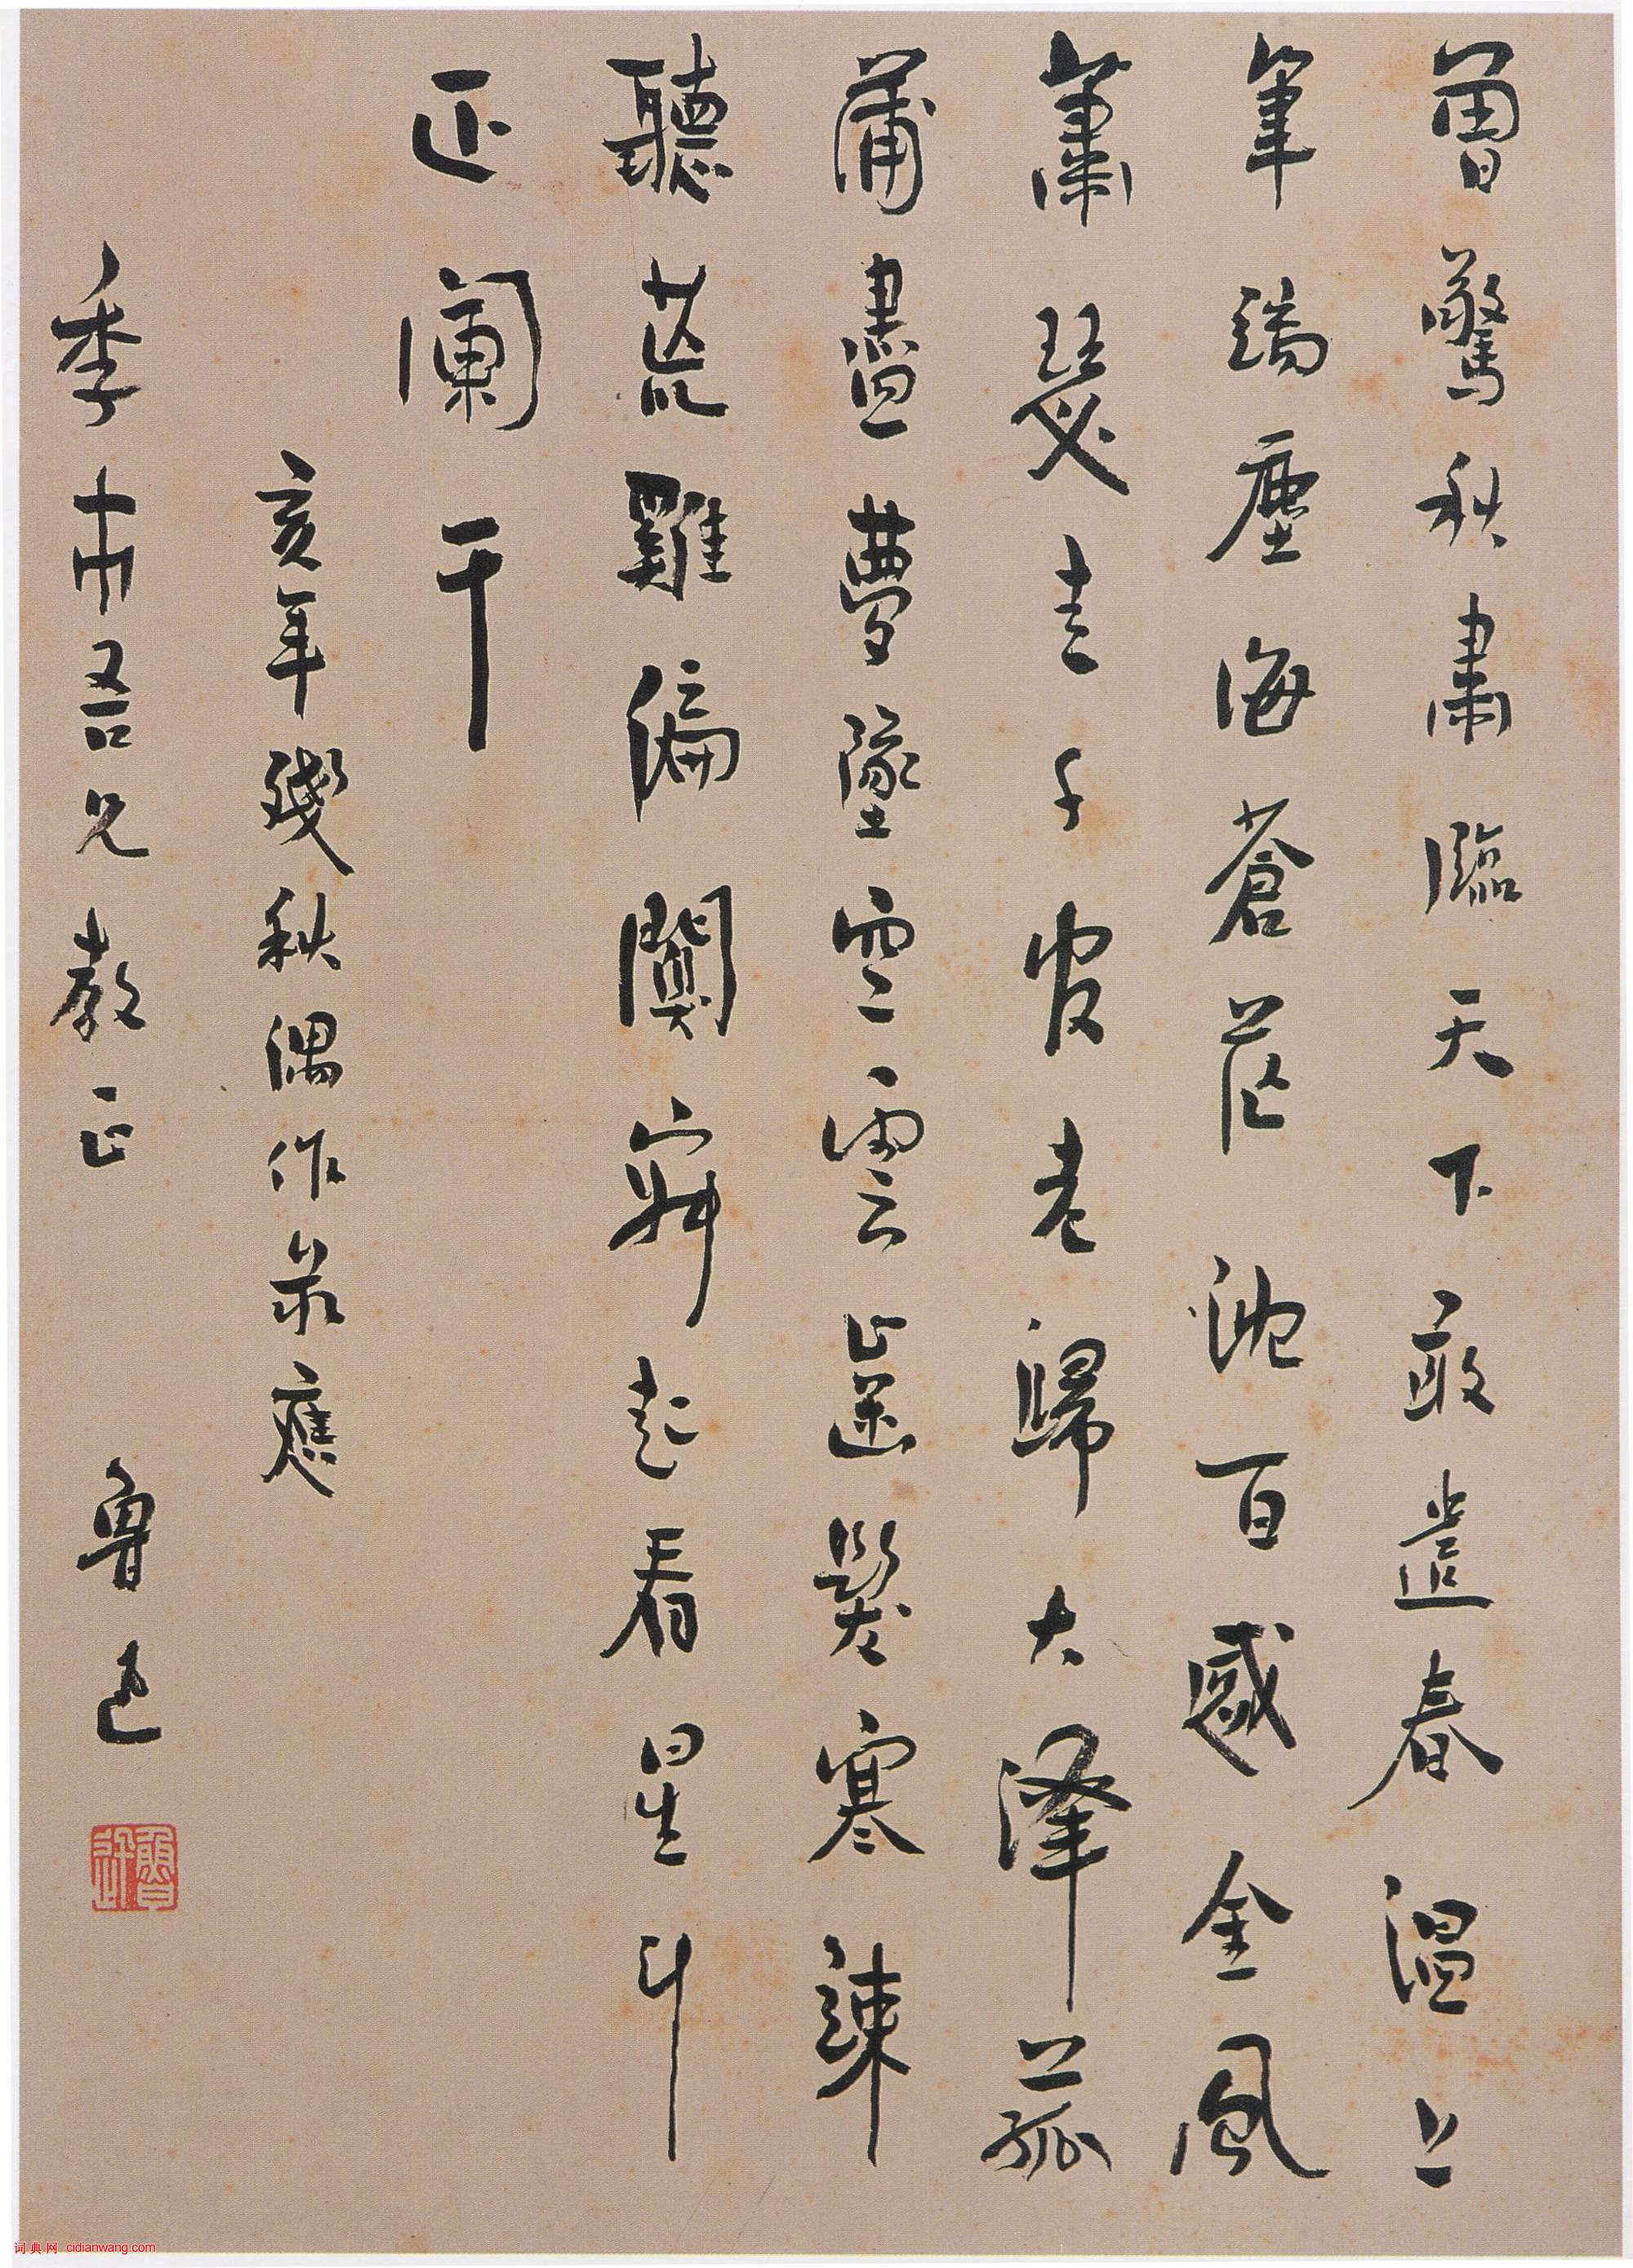 曾驚秋肅臨天下敢遣春溫上
筆端塵海蒼茫沈百感金風
蕭瑟走千官老歸大澤菰
蒲盡夢墜空雲齒髮寒竦
聽荒雞偏闃寂起看星斗
正闌干
亥年殘秋偶作錄應
季市吾兄教正 魯迅
魯迅
词典网 cidianwang.com